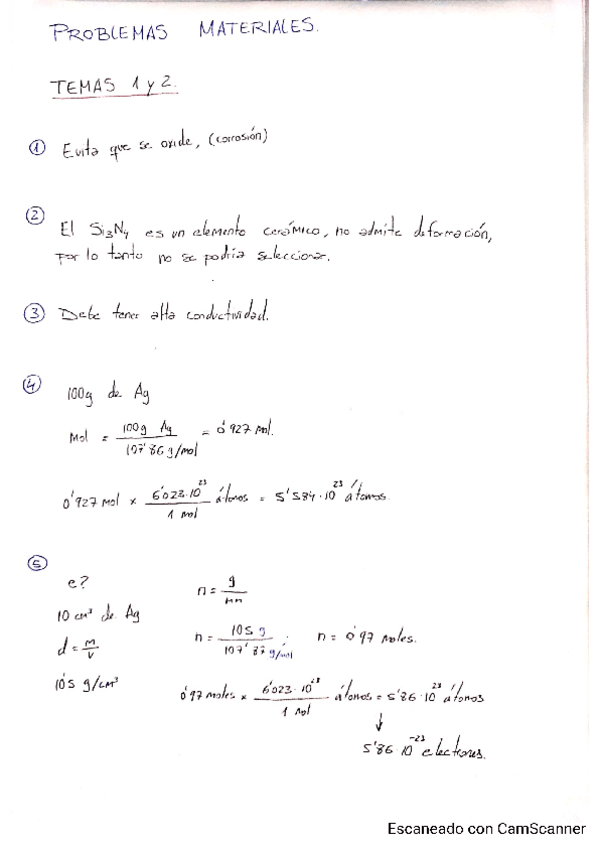 PROBLEMAS MATERIALES.
TEMAS 1 y 2.
① Evita que se oxide, (corrosión)
② El Si₃N₄ es un elemento cerámico, no admite deformación,
por lo tanto no se podría seleccionar.
③ Debe tener alta conductividad.
④ 100g de Ag
Mol = 100g Ag / 107'86 g/mol = 0'927 mol.
0'927 mol × 6'023·10²³ átomos / 1 mol = 5'584·10²³ átomos.
⑤ e?
10 cm³ de Ag
d = m/v
10'5 g/cm³
n = g/mm
n = 105 g / 107'87 g/mol ; n = 0'97 moles.
0'97 moles × 6'023·10²³ átomos / 1 mol = 5'86·10²³ átomos
↓
5'86·10⁻²³ electrones.
Escaneado con CamScanner